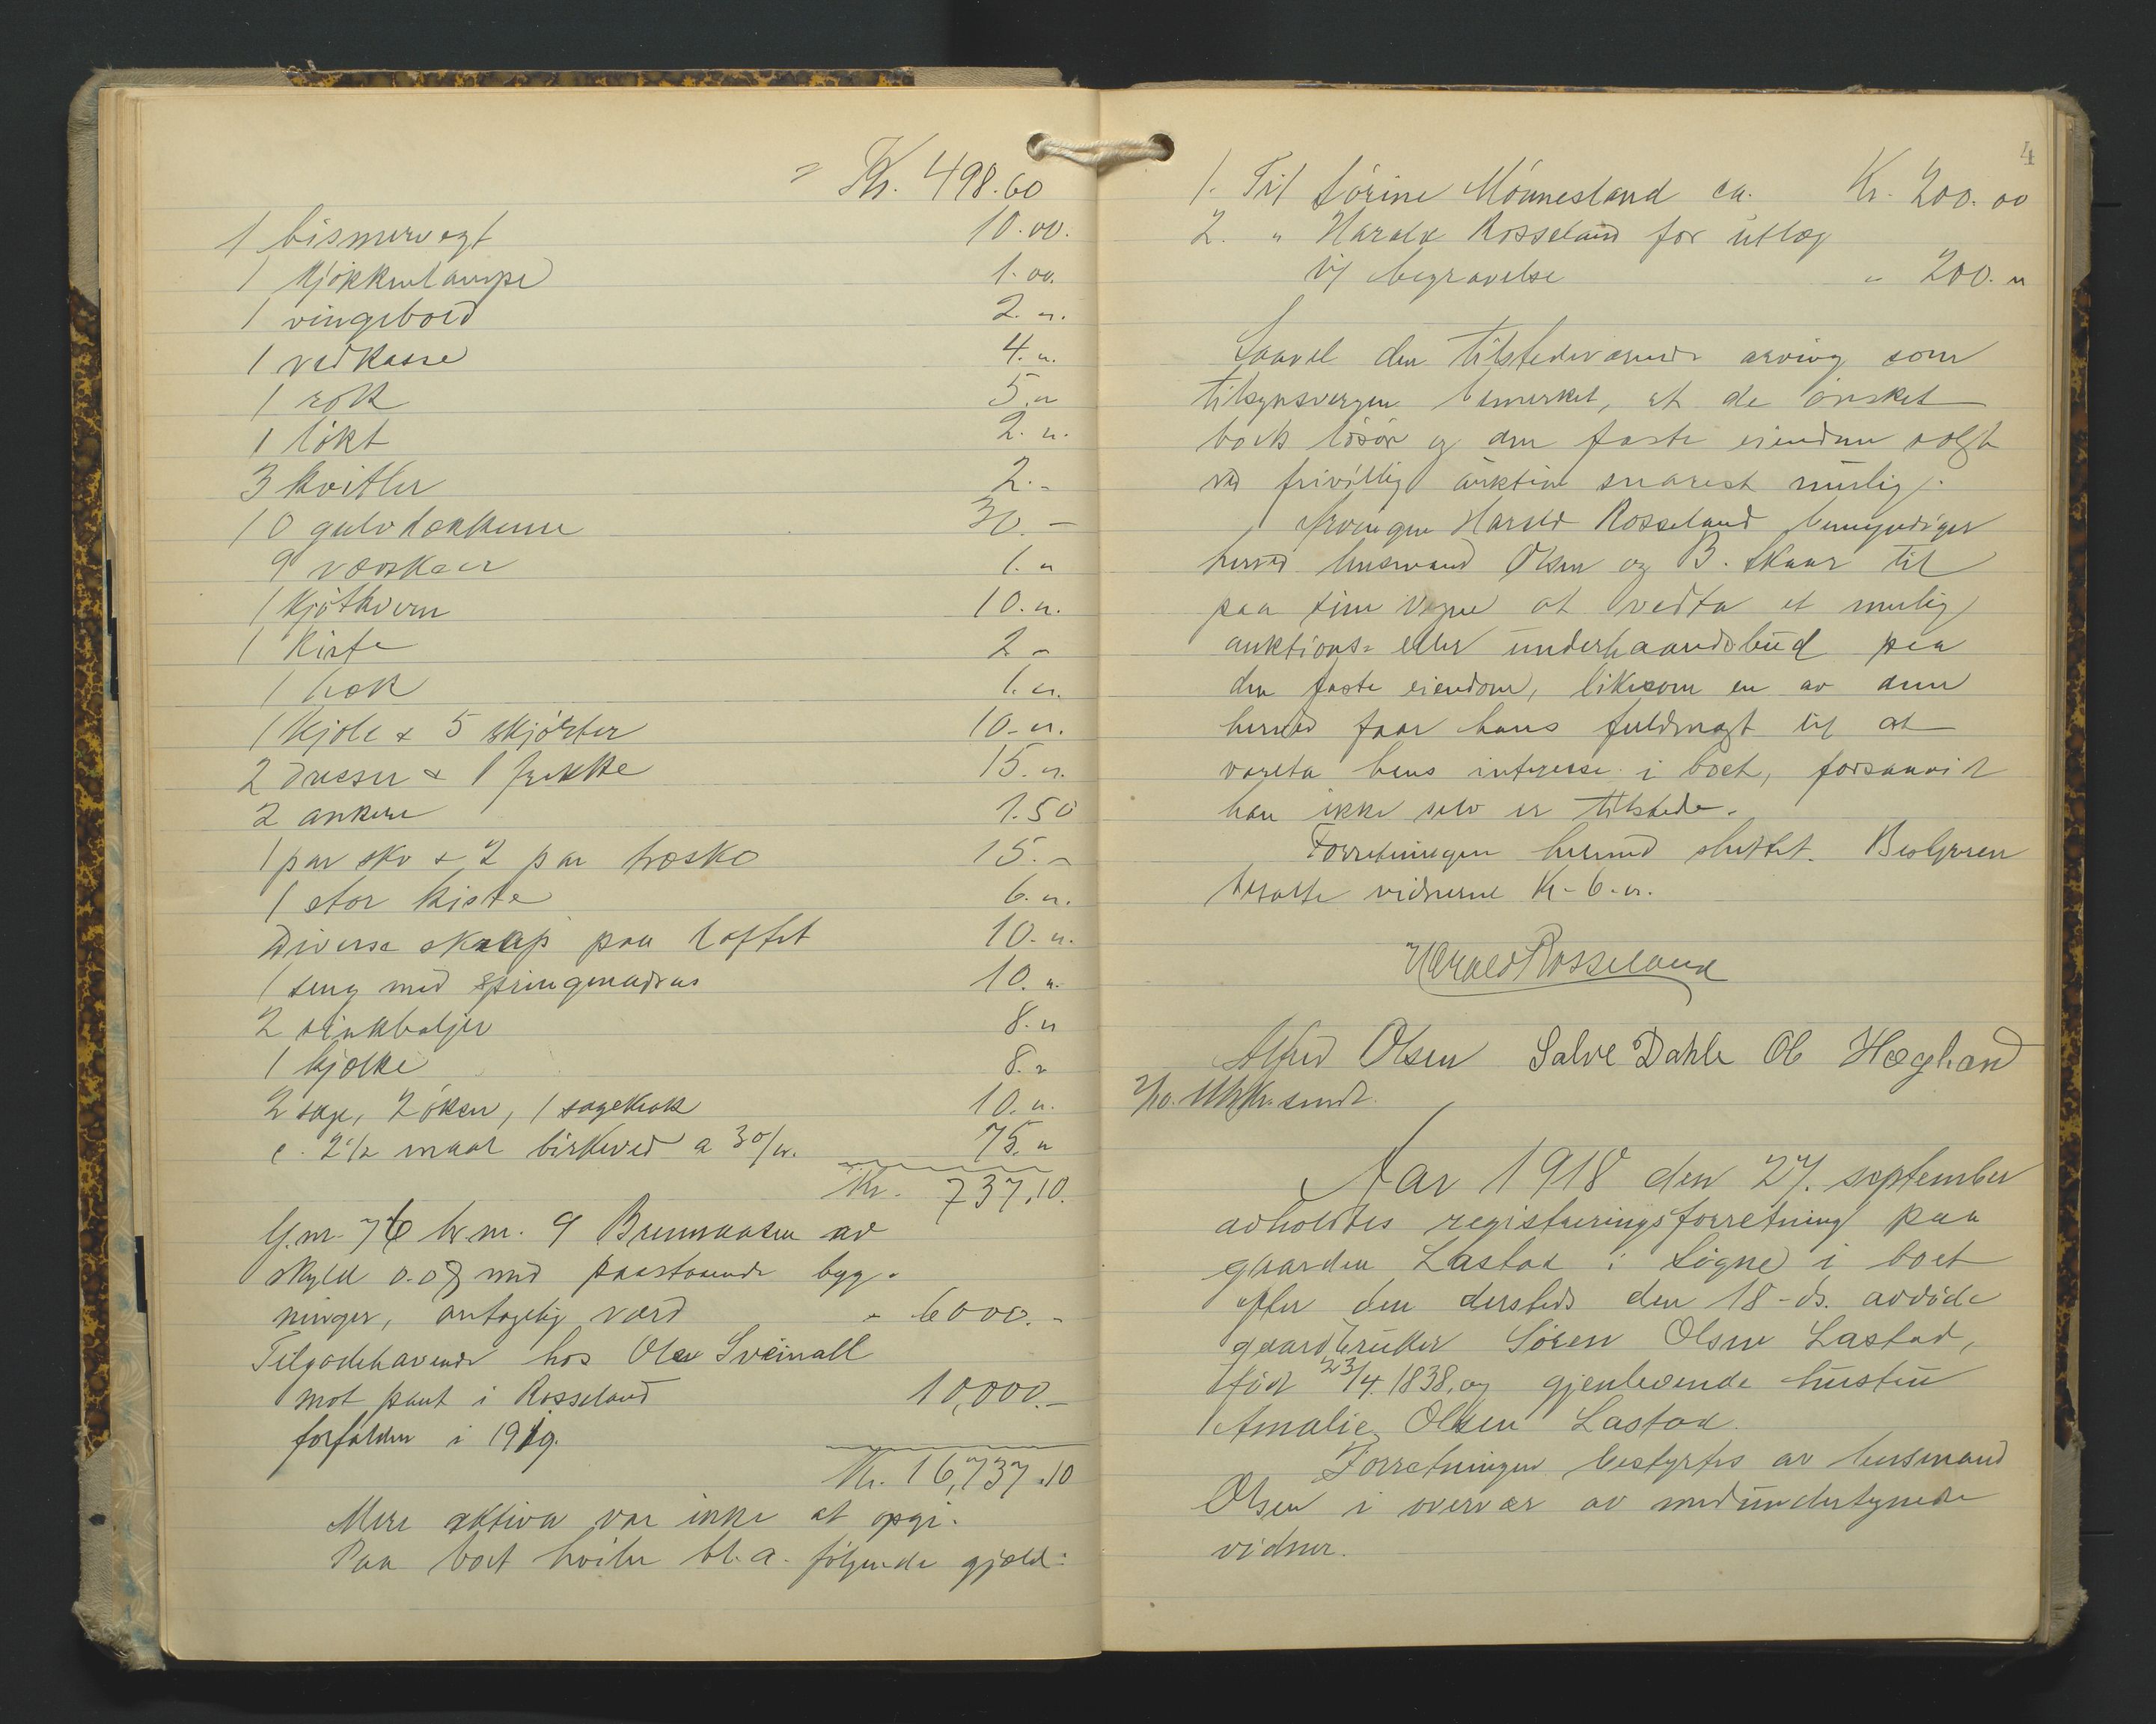 = Kr. 498.60
1 bismervegt 10.00.
1 kjøkkenlampe 1.00.
1 vingebord 2.-
1 vedkasse 4.-
1 rok 5.-
1 løkt 2.-
3 kvitler 2.-
10 gulvtækkener 30.-
9 1.-
1 kjøtkvern 10.-
1 kiste 2.-
1 1.-
1 kjole & 5 skjørter 10.-
2 dresser & 1 frakke 15.-
2 ankere 1.50
1 par sko & 2 par træsko 15.-
1 stor kiste 6.-
Diverse skrap paa loftet 10.-
1 seng med springmadras 10.-
2 sinkbaljer 8.-
1 kjælke 8.-
2 sage, 2 økser, 1 sagekrak 10.-
c. 2 1/2 maal birkeved a 30/kr. 75.-
Kr. 737.10.
G.nr. 76 br.nr. 9 av
skyld 0.08 med paastaaende byg-
ninger, antagelig værd " 6000.-
Tilgodehavende hos Olav Sveinall
mot pant i Rosseland 10,000.-
forfalden i 1919.
Kr. 16,737.10
Mere aktiva var ikke at opgi.
Paa boet hviler bl.a. følgende gjæld:
4
1. Til Sørine Mønnesland ca. Kr. 200.00
2. " Harald Rosseland for utlæg
til begravelse " 200.-
Saavel den tilstedeværende arving som
tilsynsvergen bemerket, at de ønsket
boets løsøre og den faste eiendom solgt
ved frivillig auktion snarest mulig.
Arvingen Harald Rosseland bemyndiger
herved lensmand Olsen og B. Skaar til
paa sine vegne at vedta et mulig
auktions- eller underhaandsbud paa
den faste eiendom, likesom en av dem
herved faar hans fuldmagt til at
vareta hans interesse i boet, forsaavidt
han ikke selv er tilstede.
Forretningen hermed sluttet. Bestyreren
betalte vidnerne Kr. 6.-
Harald Rosseland
Alfred Olsen Salve Dahle Ob Hægland
2/10. sendt.
Aar 1918 den 27. september
avholdtes registreringsforretning paa
gaarden Lastad i Søgne i boet
efter den dersteds den 18-ds. avdøde
gaardbruker Søren Olsen Lastad,
født 23/4. 1838, og gjenlevende hustru
Amalie Olsen Lastad.
Forretningen bestyrtes av lensmand
Olsen i overvær av medundertegnede
vidner.